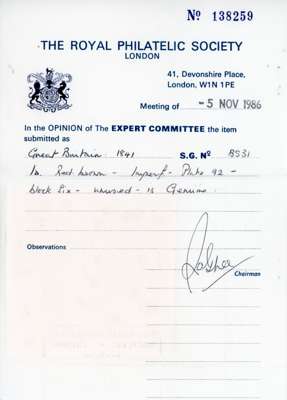 Nº 138259
THE ROYAL PHILATELIC SOCIETY
LONDON
41, Devonshire Place,
London, W1N 1PE
Meeting of -5 NOV 1986
In the OPINION of The EXPERT COMMITTEE the item
submitted as
Great Britain 1841 S.G. Nº BS31
1d. Red brown - Imperf - Plate 92 -
block six - unused - is Genuine.
Observations
Chairman